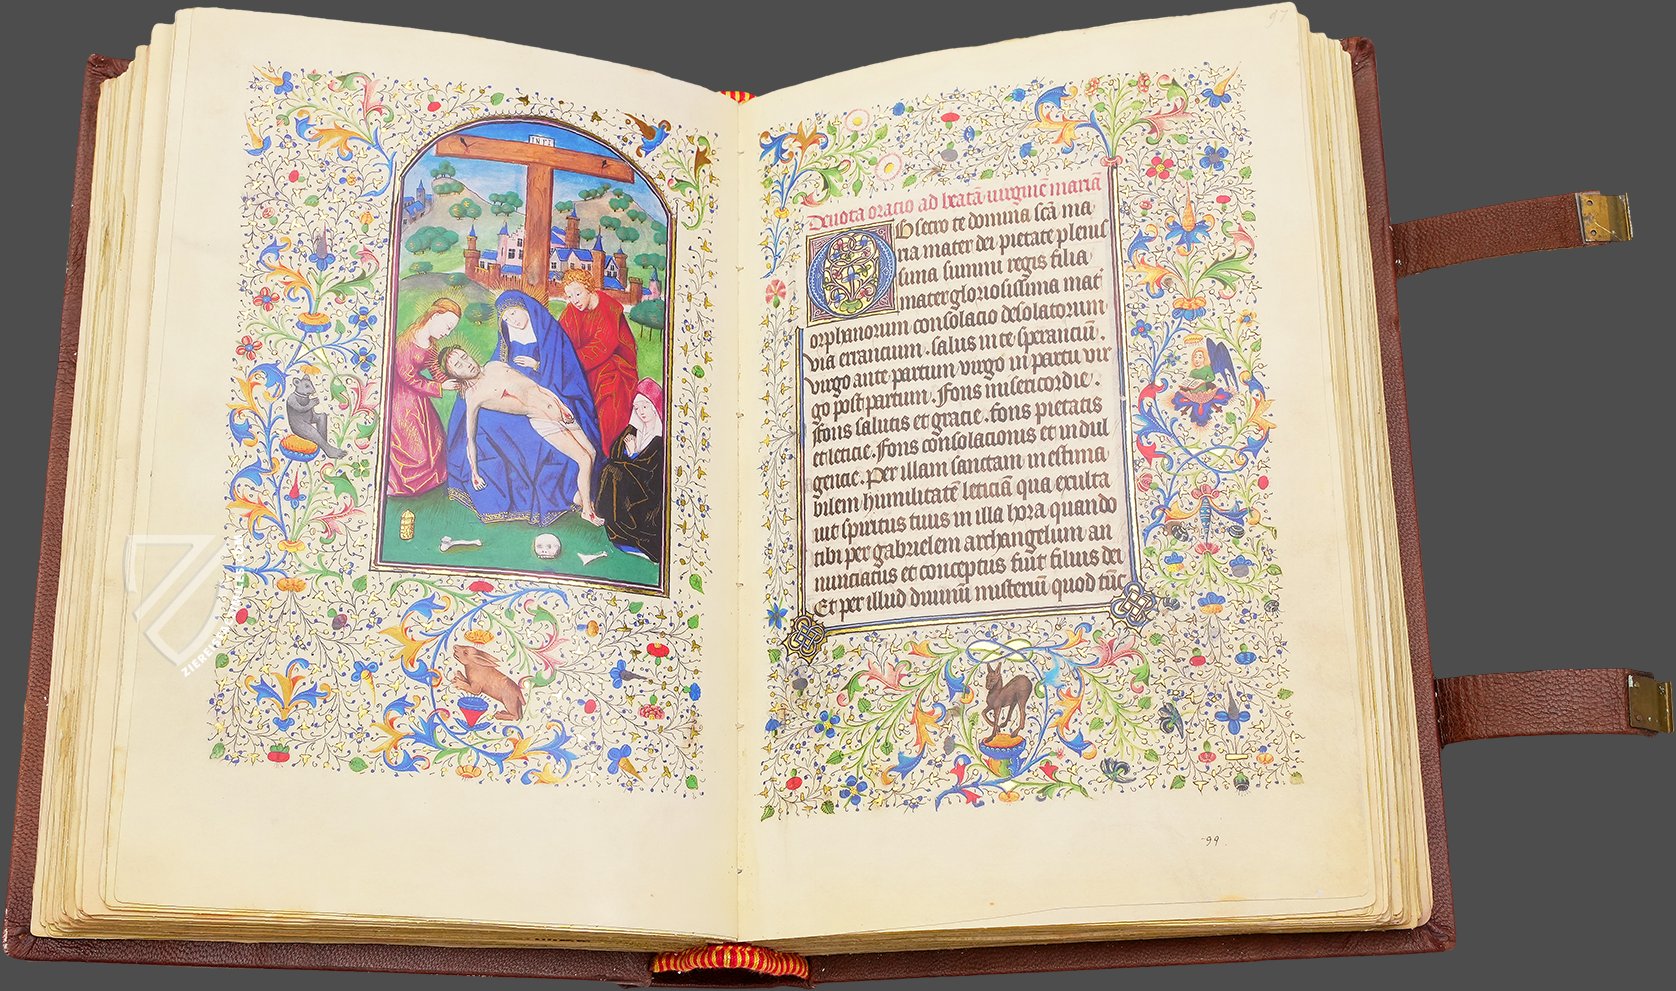 INRI
97
Devota oracio ad beatā virginē mariā
Obsecro te domina scā ma
ria mater dei pietate plenis
sima summi regis filia
mater gloriosissima mat
orphanorum consolacio desolatorum
via errancium. salus in te sperantiū.
virgo ante partum virgo in partu vir
go post partum. Fons misericordie.
fons salutis et gracie. fons pietatis
et leticie. Fons consolacionis et indul
gencie. Per illam sanctam inestima
bilem humilitatē leticiā qua exulta
uit spiritus tuus in illa hora quando
tibi per gabrielem archangelum an
nunciatus et conceptus fuit filius dei
Et per illud diuinū misteriū quod tūc
99